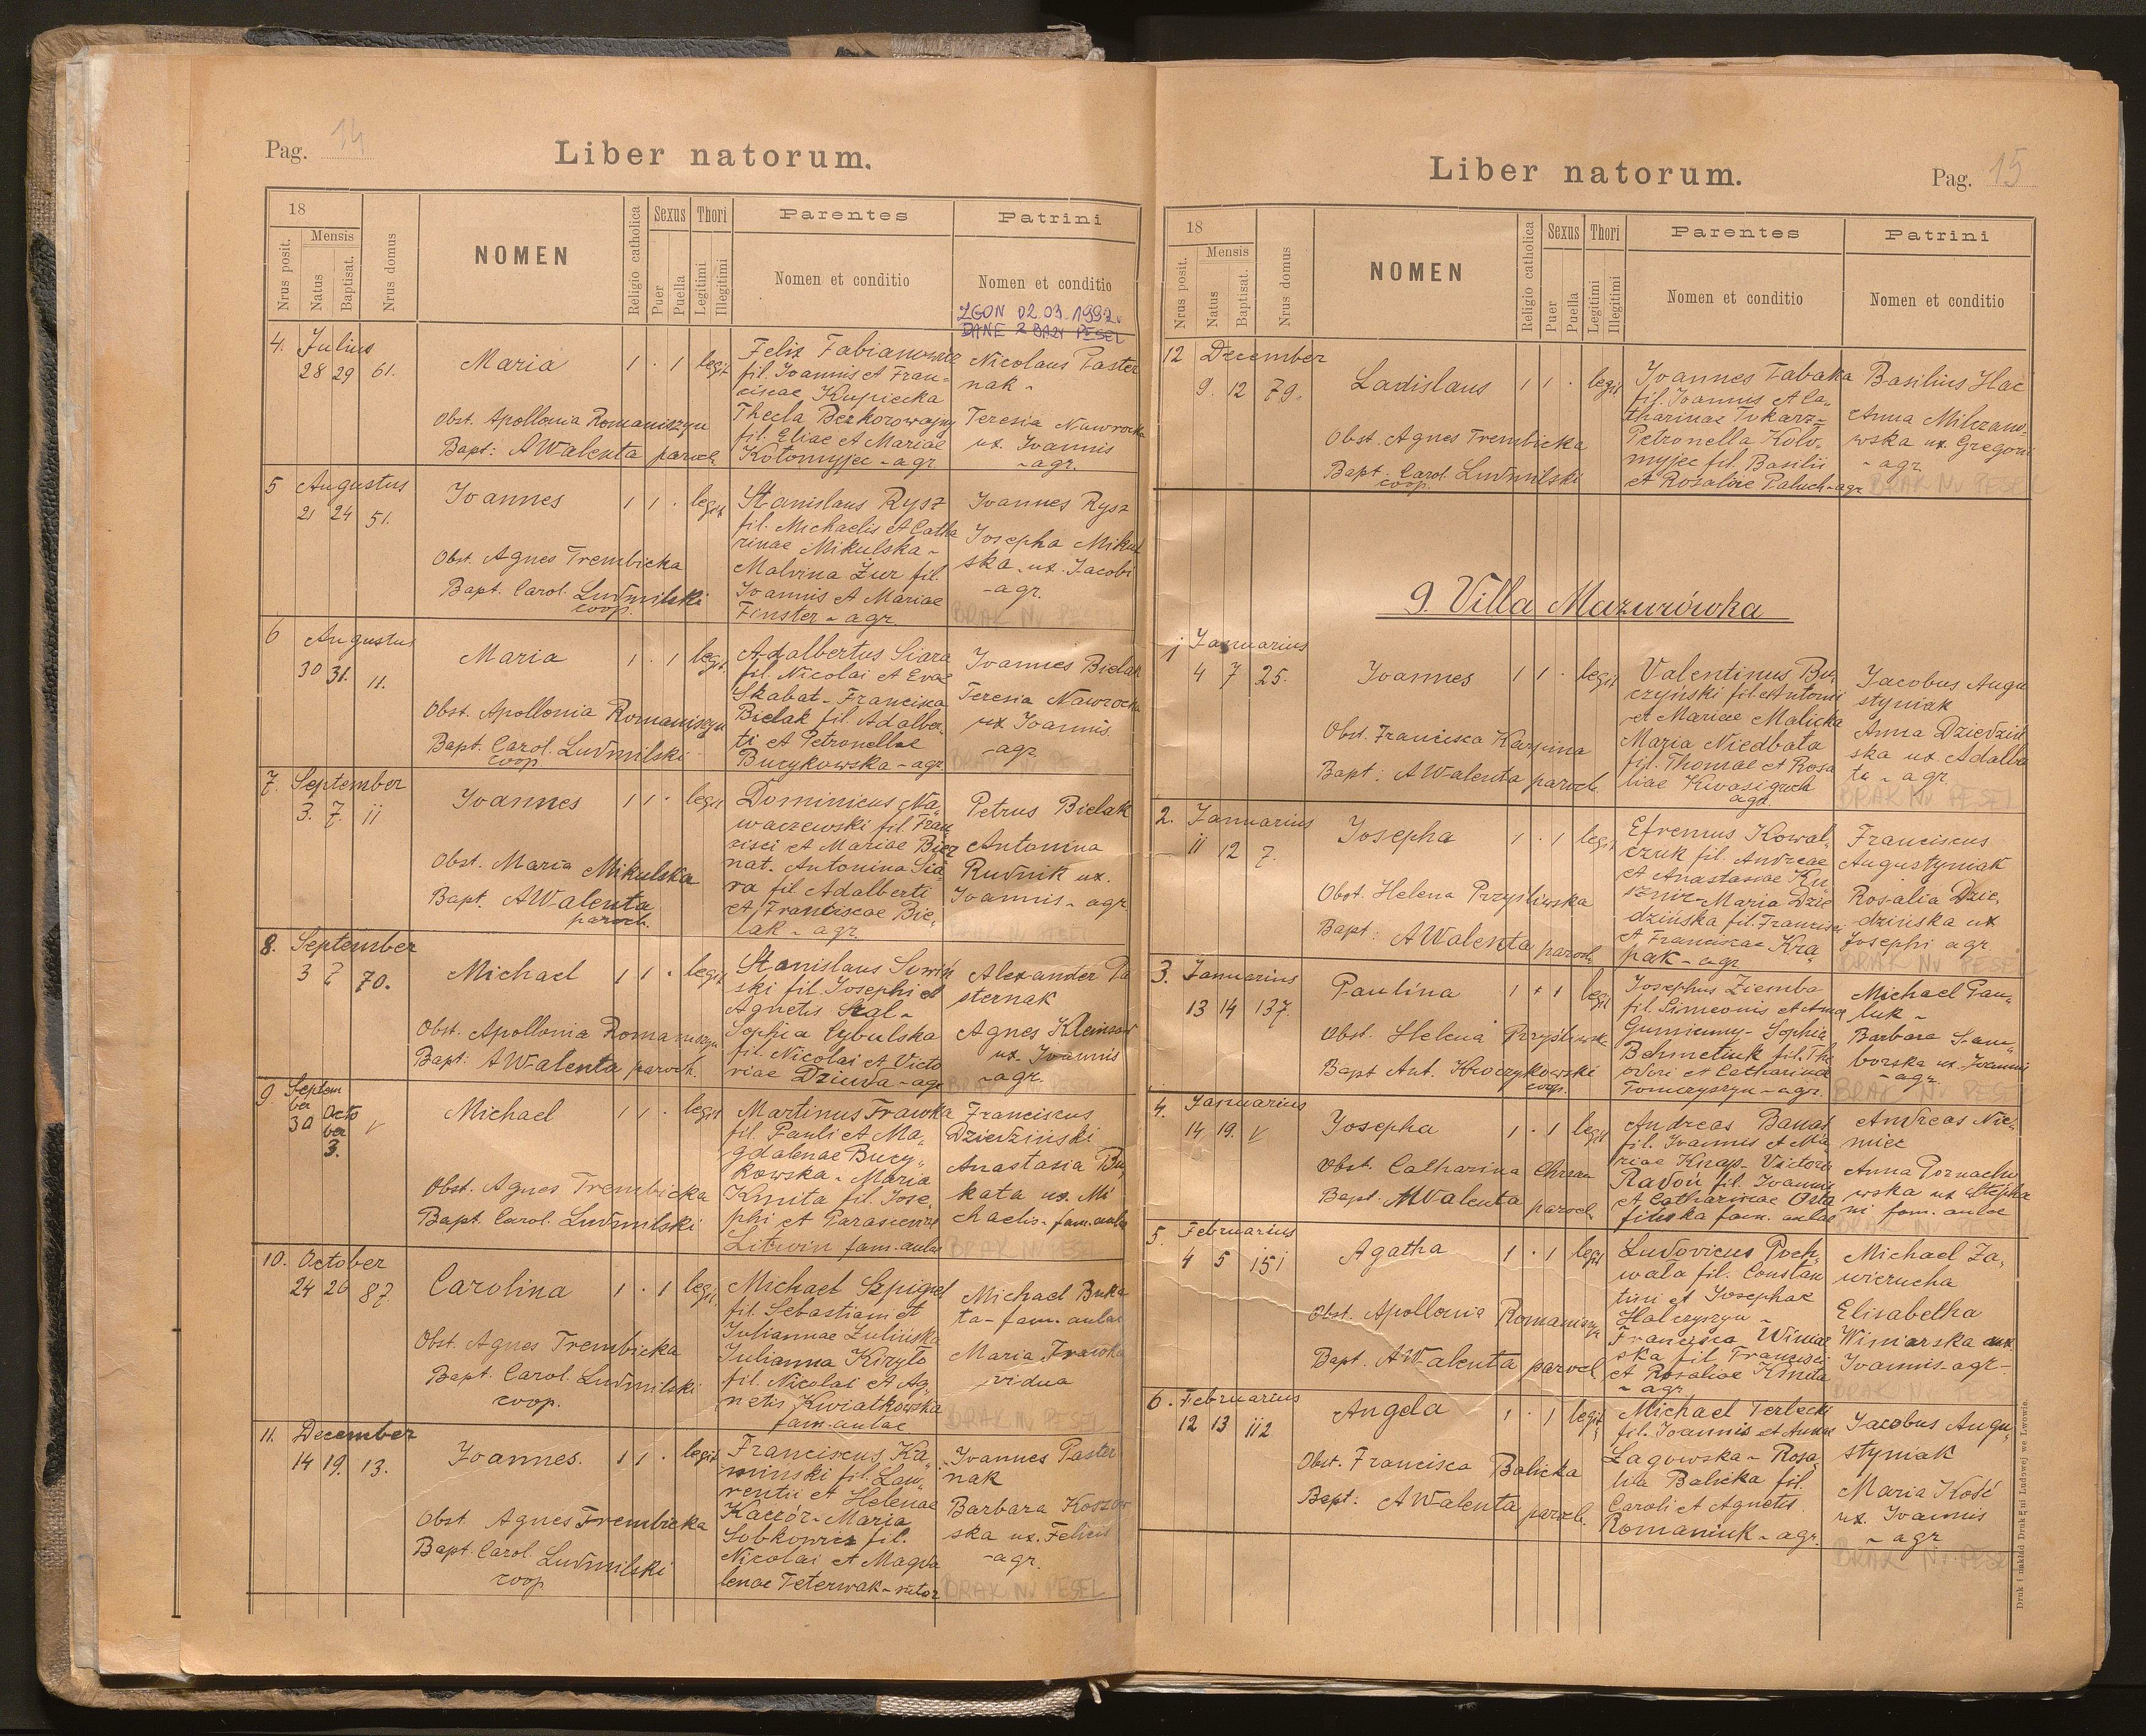 Pag. 14
Liber natorum.
18
Mensis
Nrus posit.
Natus
Baptisat.
Nrus domus
NOMEN
Religio catholica
Sexus
Puer
Puella
Thori
Legitimi
Illegitimi
Parentes
Nomen et conditio
Patrini
Nomen et conditio
ZGON 02.03.1992.
DANE Z BAZY PESEL
4. Julius
28 29 61.
Maria
1 . 1 legit
Obst. Apollonia Romaniszyn
Bapt: AWalenta paroch.
Felix Fabianowic
fil. Joannis et Fran-
ciscae Kupiecka
Thecla Bezkorowajny
fil. Eliae et Mariae
Kołomyjec - agr.
Nicolaus Paster
nak -
Teresia Nawrocka
ux. Joannis
- agr.
5 Augustus
21 24 51.
Joannes
1 1 . legit
Obst. Agnes Trembicka
Bapt. Carol. Ludmilski
coop.
Stanislaus Rysz
fil. Michaelis et Catha
rinae Mikulska -
Malvina Żur fil.
Joannis et Mariae
Finster - agr.
Joannes Rysz
Josepha Mikul
ska ux. Jacobi
- agr.
BRAK Nv PESEL
6 Augustus
30 31. 11.
Maria
1 . 1 legit.
Obst. Apollonia Romaniszyn
Bapt. Carol. Ludmilski
coop
Adalbertus Siara
fil. Nicolai et Evae
Skabat - Francisca
Bielak fil. Adalber
ti et Petronellae
Bucykowska - agr.
Joannes Bielak
Teresia Nawrocka
ux Joannis
- agr
BRAK Nv PESEL
7. September
3. 7. 11
Joannes
1 1 . legit
Obst. Maria Mikulska
Bapt. AWalenta
paroch.
Dominicus Na
waczewski fil. Fran
cisci et Mariae Bier
nat. Antonina Sia
ra fil Adalberti
et Franciscae Bie
lak - agr.
Petrus Bielak
Antonina
Rudnik ux.
Joannis - agr.
8. September
3 7 70.
Michael
1 1 . legit
Obst. Apollonia Romaniszyn
Bapt: AWalenta paroch.
Stanislaus
ski fil. Josephi et
Agnetis
Sophia Cybulska
fil. Nicolai et Victo
riae Dziuda - agr
Alexander Pa
sternak
Agnes
ux. Joannis
- agr.
BRAK Nv PESEL
9. Septem
ber Octo
30 ber V
3.
Michael
1 1 . legit
Obst. Agnes Trembicka
Bapt. Carol. Ludmilski
Martinus Frawka
fil. Pauli et Ma
gdalenae Bucy
kowska - Maria
Kmita fil. Jose
phi et
Litwin fam. aulae
Franciscus
Dziedziński
Anastasia Bu
kata ux. Mi
chaelis - fam. aulae
BRAK Nv PESEL
10. October
24 26 87.
Carolina
1 . 1 legit.
Obst. Agnes Trembicka
Bapt. Carol. Ludmilski
coop.
Michael Szpigel
fil. Sebastiani et
Juliannae Zulińska
Julianna Kiryło
fil. Nicolai et Ag
netis Kwiatkowska
fam. aulae
Michael Buka
ta - fam. aulae
Maria Frawka
vidua
BRAK Nv PESEL
11. December
14 19. 13.
Joannes.
1 1 . legit
Obst Agnes Trembicka
Bapt. Carol. Ludmilski
coop
Franciscus Ka
miński fil. Law
rentii et Helenae
Kaczór - Maria
Sobkowicz fil.
Nicolai et Magda
lenae Teterwak - sutor
Joannes Paster
nak
Barbara
ska ux. Felicis
- agr.
BRAK Nv PESEL
Liber natorum.
Pag. 15
18
Mensis
Nrus posit.
Natus
Baptisat.
Nrus domus
NOMEN
Religio catholica
Sexus
Puer
Puella
Thori
Legitimi
Illegitimi
Parentes
Nomen et conditio
Patrini
Nomen et conditio
12 December
9. 12 79.
Ladislaus
1 1 . legit
Obst. Agnes Trembicka
Bapt. Carol. Ludmilski
coop.
Joannes Tabaka
fil. Joannis et Ca
tharinae Tokarz -
Petronella Koło
myjec fil. Basilii
et Rosaliae Paluch - agr
Basilius Hac
Anna Milczano
wska ux. Gregorii
- agr
BRAK Nv PESEL
9. Villa Mazurówka
1 Januarius
4 7 25.
Joannes
1 1 . legit
Obst. Francisca Karpina
Bapt: AWalenta paroch.
Valentinus Bu
czyński fil. Antonii
et Mariae Malicka
Maria Niedbała
fil. Thomae et Rosa
liae Kwasigroch
agr.
Jacobus Augu
styniak
Anna Dziedziń
ska ux. Adalber
ti - agr
BRAK Nv PESEL
2. Januarius
11 12 7.
Josepha
1 . 1 legit
Obst. Helena Przyśliwska
Bapt: AWalenta paroch
Efremus Kowal
czuk fil. Andreae
et Anastasiae Ku
sznir - Maria Dzie
dzińska fil. Francisci
et Franciscae Kra
pak - agr
Franciscus
Augustyniak
Rosalia Dzie
dzińska ux
Josephi agr.
BRAK Nv PESEL
3. Januarius
13 14 137.
Paulina
1 . 1 legit
Obst. Helena Przyśliwska
Bapt Ant. Kwoczykowski
coop.
Josephus Ziemba
fil. Simeonis et Annae
Gumienny - Sophia
Behmetiuk fil. The
odori et Catharinae
Tomczyszyn - agr.
Michael Paw
luk -
Barbara Sam
borska ux. Joannis
- agr.
BRAK Nv PESEL
4. Januarius
14 19. V
Josepha
1 . 1 legit
Obst. Catharina Chrzan
Bapt. AWalenta paroch
Andreas Banaś
fil. Joannis et Ma
riae Knap - Victoria
Radoń fil. Joannis
et Catharinae
fińska fam. aulae
Andreas Nie
miec
Anna Poznacho
wska ux Stepha
ni fam. aulae
BRAK Nv PESEL
5. Februarius
4 5 151
Agatha
1 . 1 legit
Obst. Apollonia Romaniszyn
Bapt. AWalenta paroch
Ludovicus Poch
wała fil. Constan
tini et Josephae
Halczyszyn -
Francisca Winiar
ska fil. Francisci
et Rosaliae Kmita
- agr
Michael Za
wierucha
Elisabetha
Winiarska ux
Joannis agr -
BRAK Nv PESEL
6. Februarius
12 13 112
Angela
1 . 1 legit.
Obst. Francisca Balicka
Bapt: AWalenta paroch.
Michael Terlecki
fil. Joannis et Annae
Łagowska - Rosa
lia Balicka fil.
Caroli et Agnetis
Romaniuk - agr.
Jacobus Augu
styniak
Maria Kość
ux. Joannis
- agr
BRAK Nv PESEL
Druk i nakład Drukarni Ludowej we Lwowie.